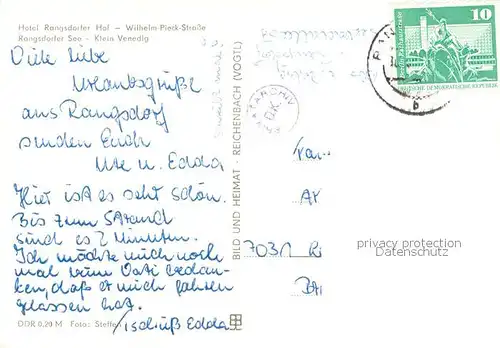 Hotel Rangsdorfer Hof — Wilhelm-Pieck-Straße
Rangsdorfer See — Klein Venedig
Viele liebe
Urlaubsgrüße
aus Rangsdorf
senden Euch
Ute u. Edda
Hier ist es sehr schön.
Bis zum Strand
sind es 2 Minuten.
Ich möchte mich noch
mal beim Vati bedan-
ken, daß er mich fahren
gelassen hat.
Tschüß Edda
DDR 0,20 M Foto: Steffen
BILD UND HEIMAT · REICHENBACH (VOGTL)
10
DEUTSCHE DEMOKRATISCHE REPUBLIK
RAN
b
Fam
703
privacy protection
Datenschutz